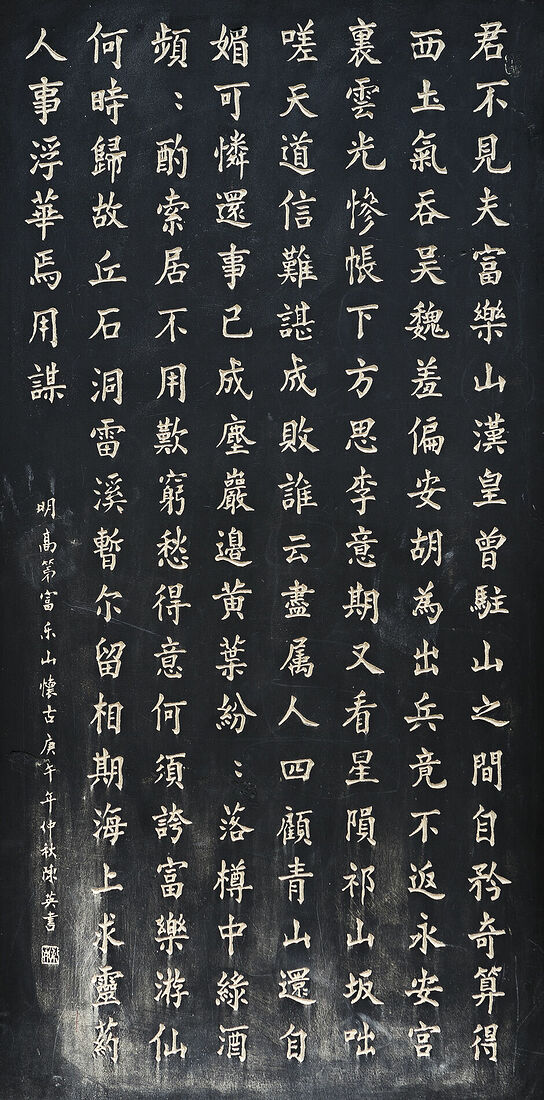 君不見夫富樂山漢皇曾駐山之間自矜奇算得
西土氣吞吴魏羞偏安胡為出兵竟不返永安宮
裏雲光慘帳下方思李意期又看星隕祁山坂咄
嗟天道信難諶成敗誰云盡属人四顧青山還自
媚可憐還事已成塵巖邉黄葉紛：落樽中緑酒
頻：酌索居不用歎窮愁得意何須誇富樂游仙
何時歸故丘石洞雷溪暫尔留相期海上求靈药
人事浮華焉用謀
明高第富乐山懷古庚午年仲秋陈英書